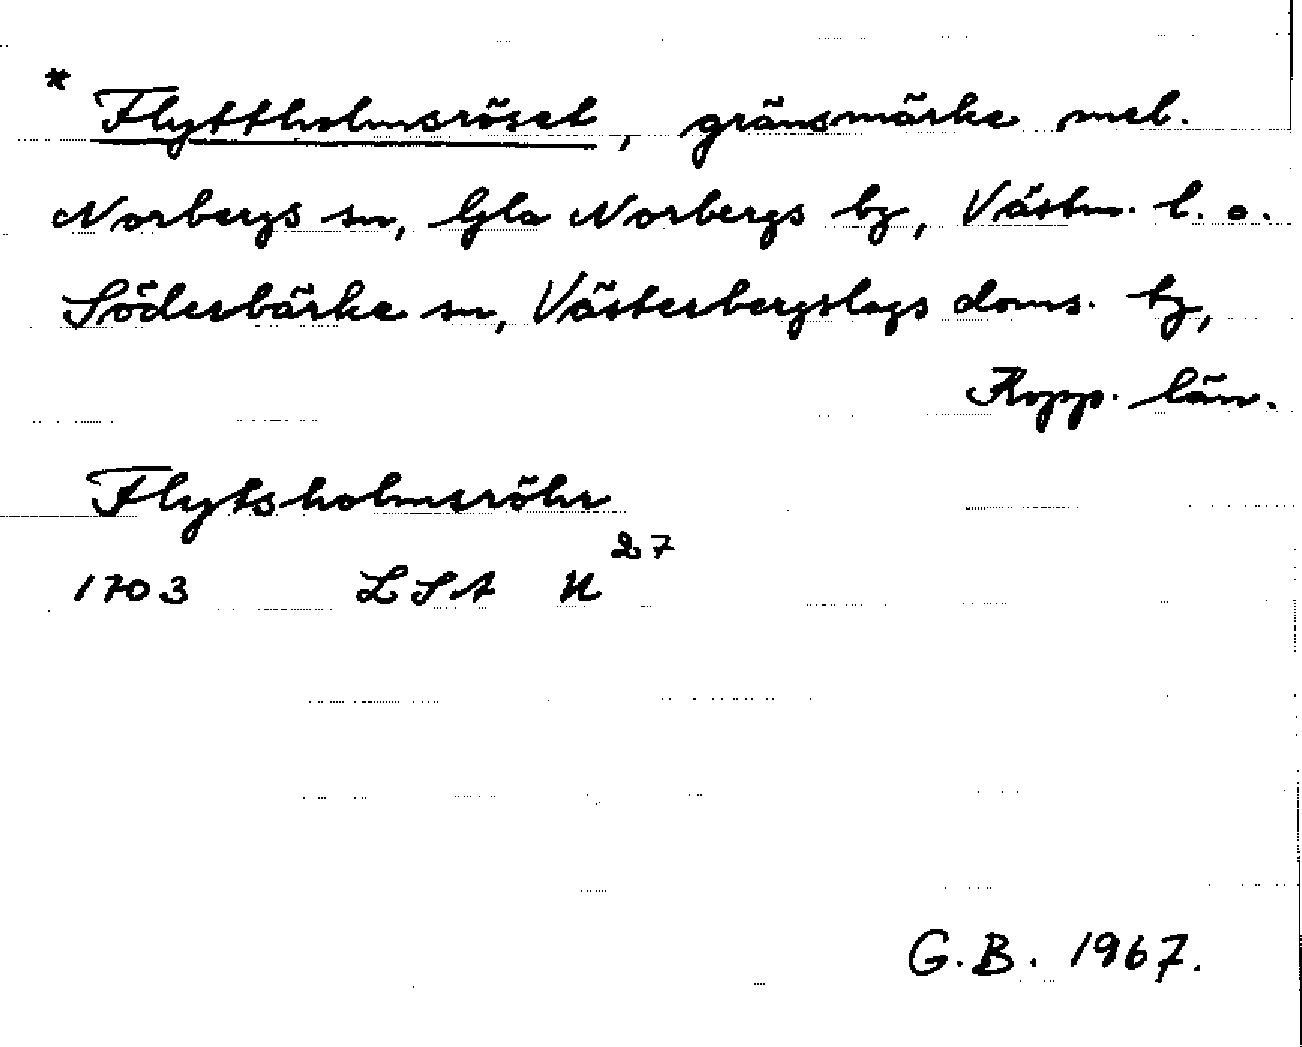 * Flyttholmsröset, gränsmärke mel.
Norbergs sn, Gla Norbergs bg, Västm. l. o.
Söderbärke sn, Västerbergslags doms. bg,
Kopp. län.
Flytsholmsröhr
1703 LSA U 27
G.B. 1967.